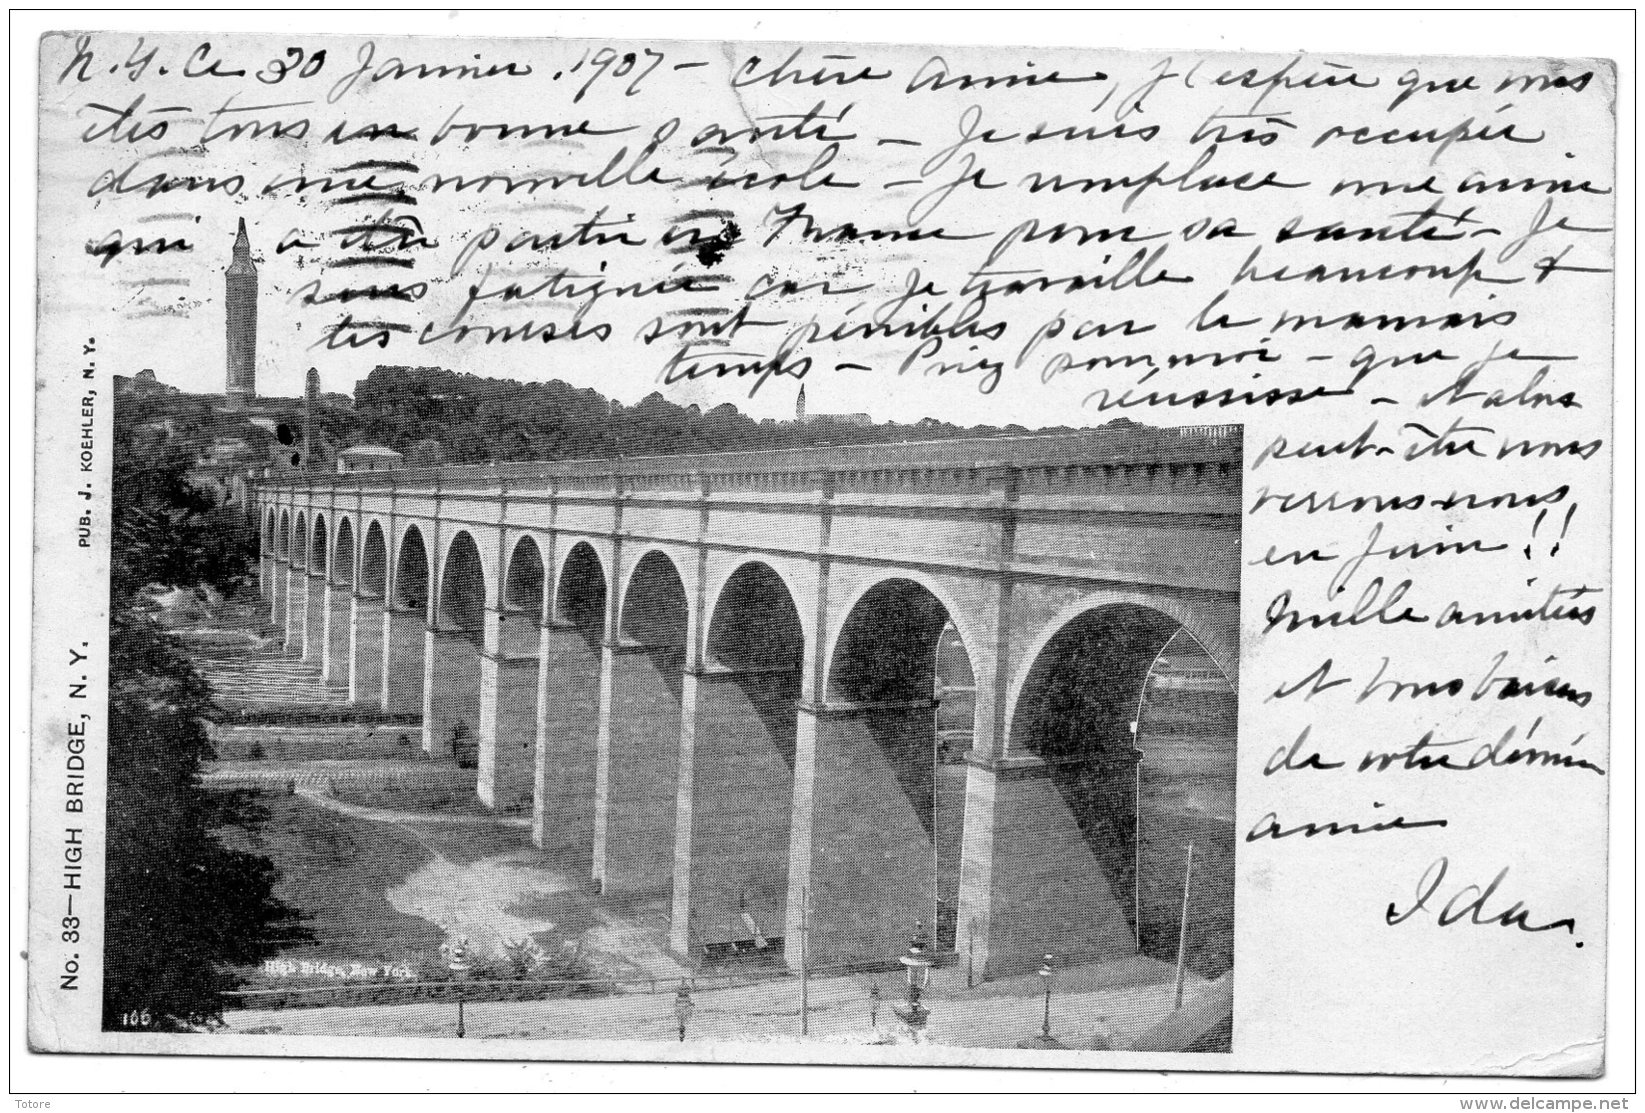 N.Y. Ce 30 Janvier. 1907 - Chère Amie, J'espère que vous
êtes tous en bonne santé - Je suis très occupée
dans une nouvelle école - Je remplace une amie
qui a dû partir en France pour sa santé - Je
suis fatiguée car je travaille beaucoup &
les courses sont pénibles par le mauvais
temps - Priez pour moi - que je
réussisse - et alors
peut-être nous
verrons-nous
en Juin !!
Mille amitiés
et bons baisers
de votre
amie
Ida.
No. 33—HIGH BRIDGE, N. Y.
PUB. J. KOEHLER, N. Y.
High Bridge, New York.
106
Totore
www.delcampe.net